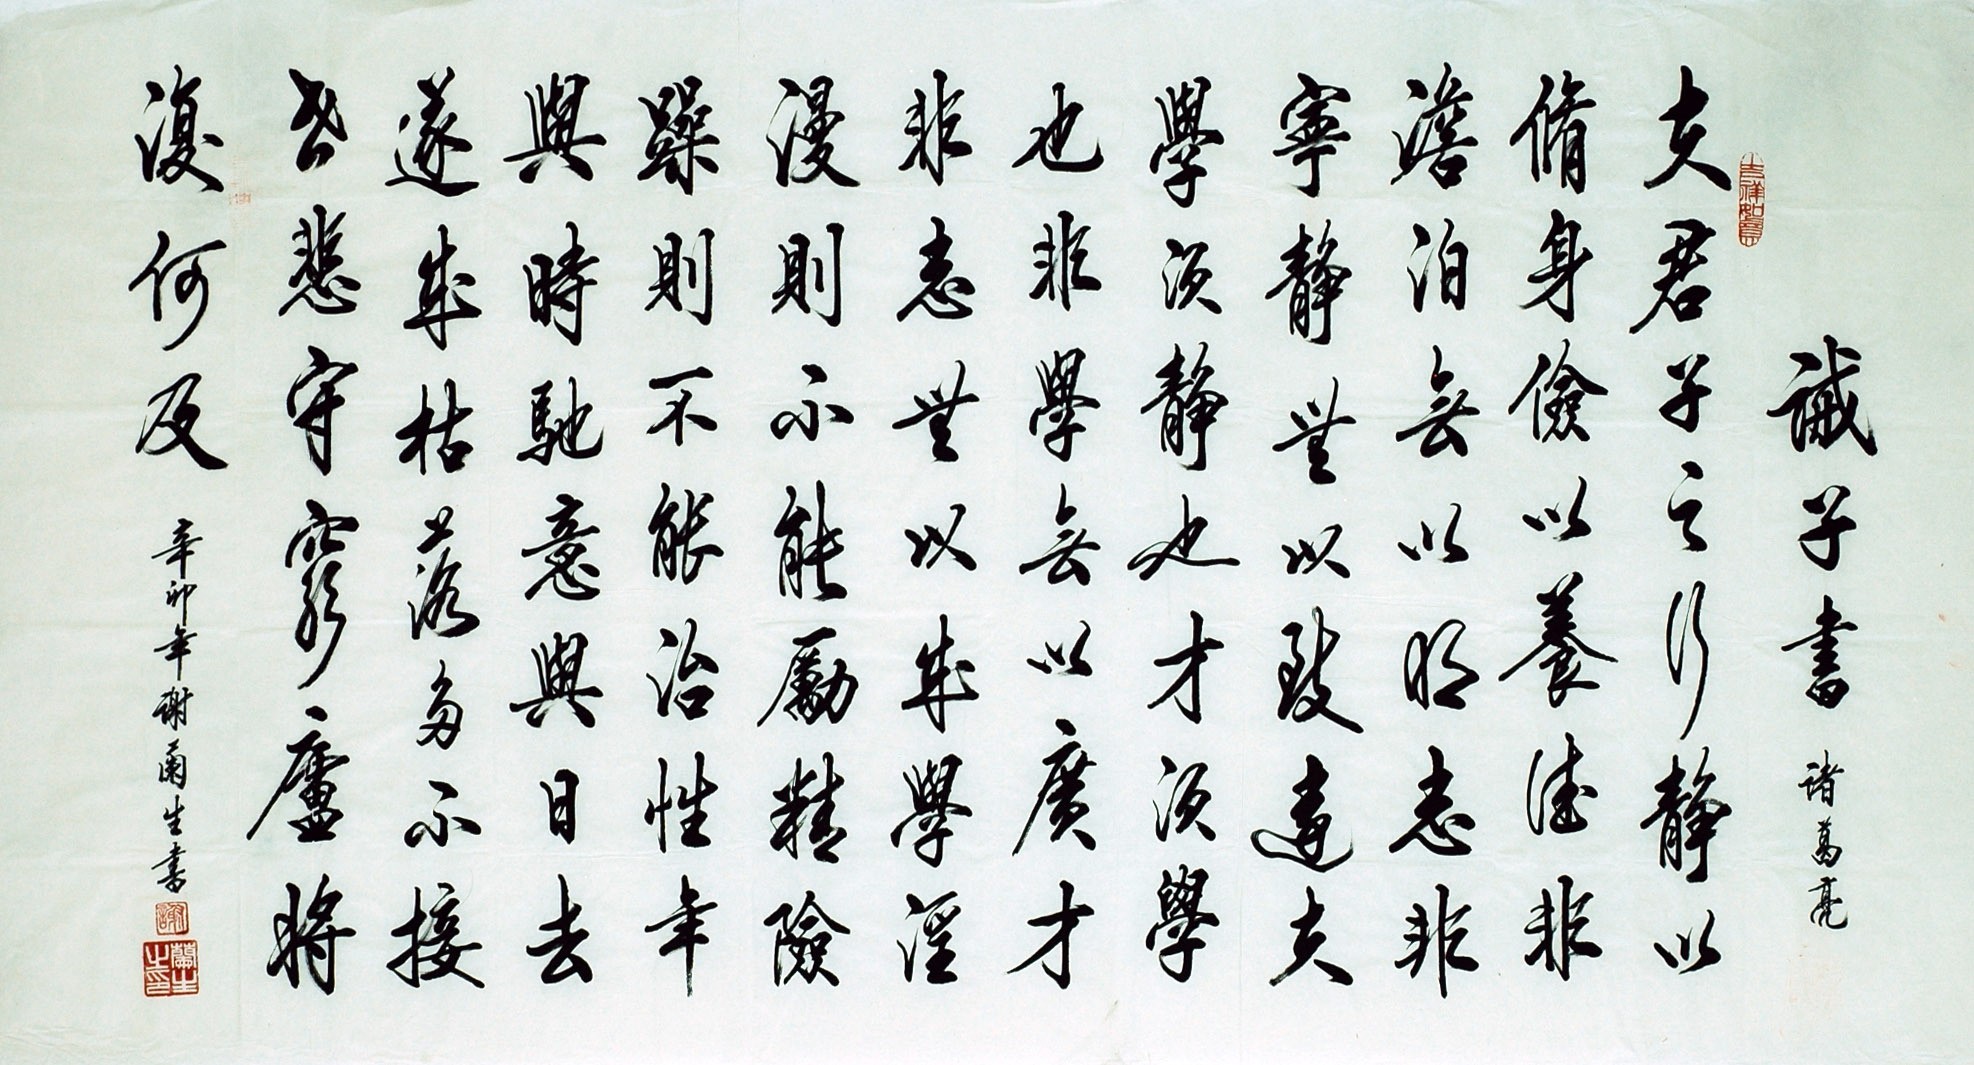 誡子書 諸葛亮
吉祥如意
夫君子之行靜以
脩身儉以養德非
澹泊無以明志非
寧靜無以致遠夫
學須靜也才須學
也非學無以廣才
非志無以成學淫
漫則不能勵精險
躁則不能治性年
與時馳意與日去
遂成枯落多不接
世悲守窮廬將
復何及
辛卯年謝蘭生書
謝
蘭生之印